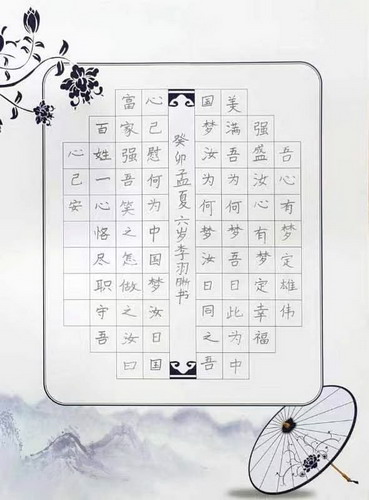 吾心有梦定雄伟
强盛汝心有梦定幸福
美满吾为何梦吾曰此为中
国梦汝为何梦汝曰同之吾
癸卯孟夏六岁李羽晰书
心己慰何为中国梦汝曰国
富家强吾笑之怎做之汝曰
百姓一心恪尽职守吾
心己安